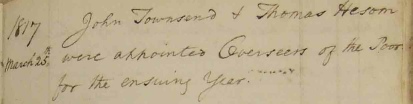 1817 John Townsend & Thomas Hesom
March 25th were appointed Overseers of the Poor
for the ensuing Year.